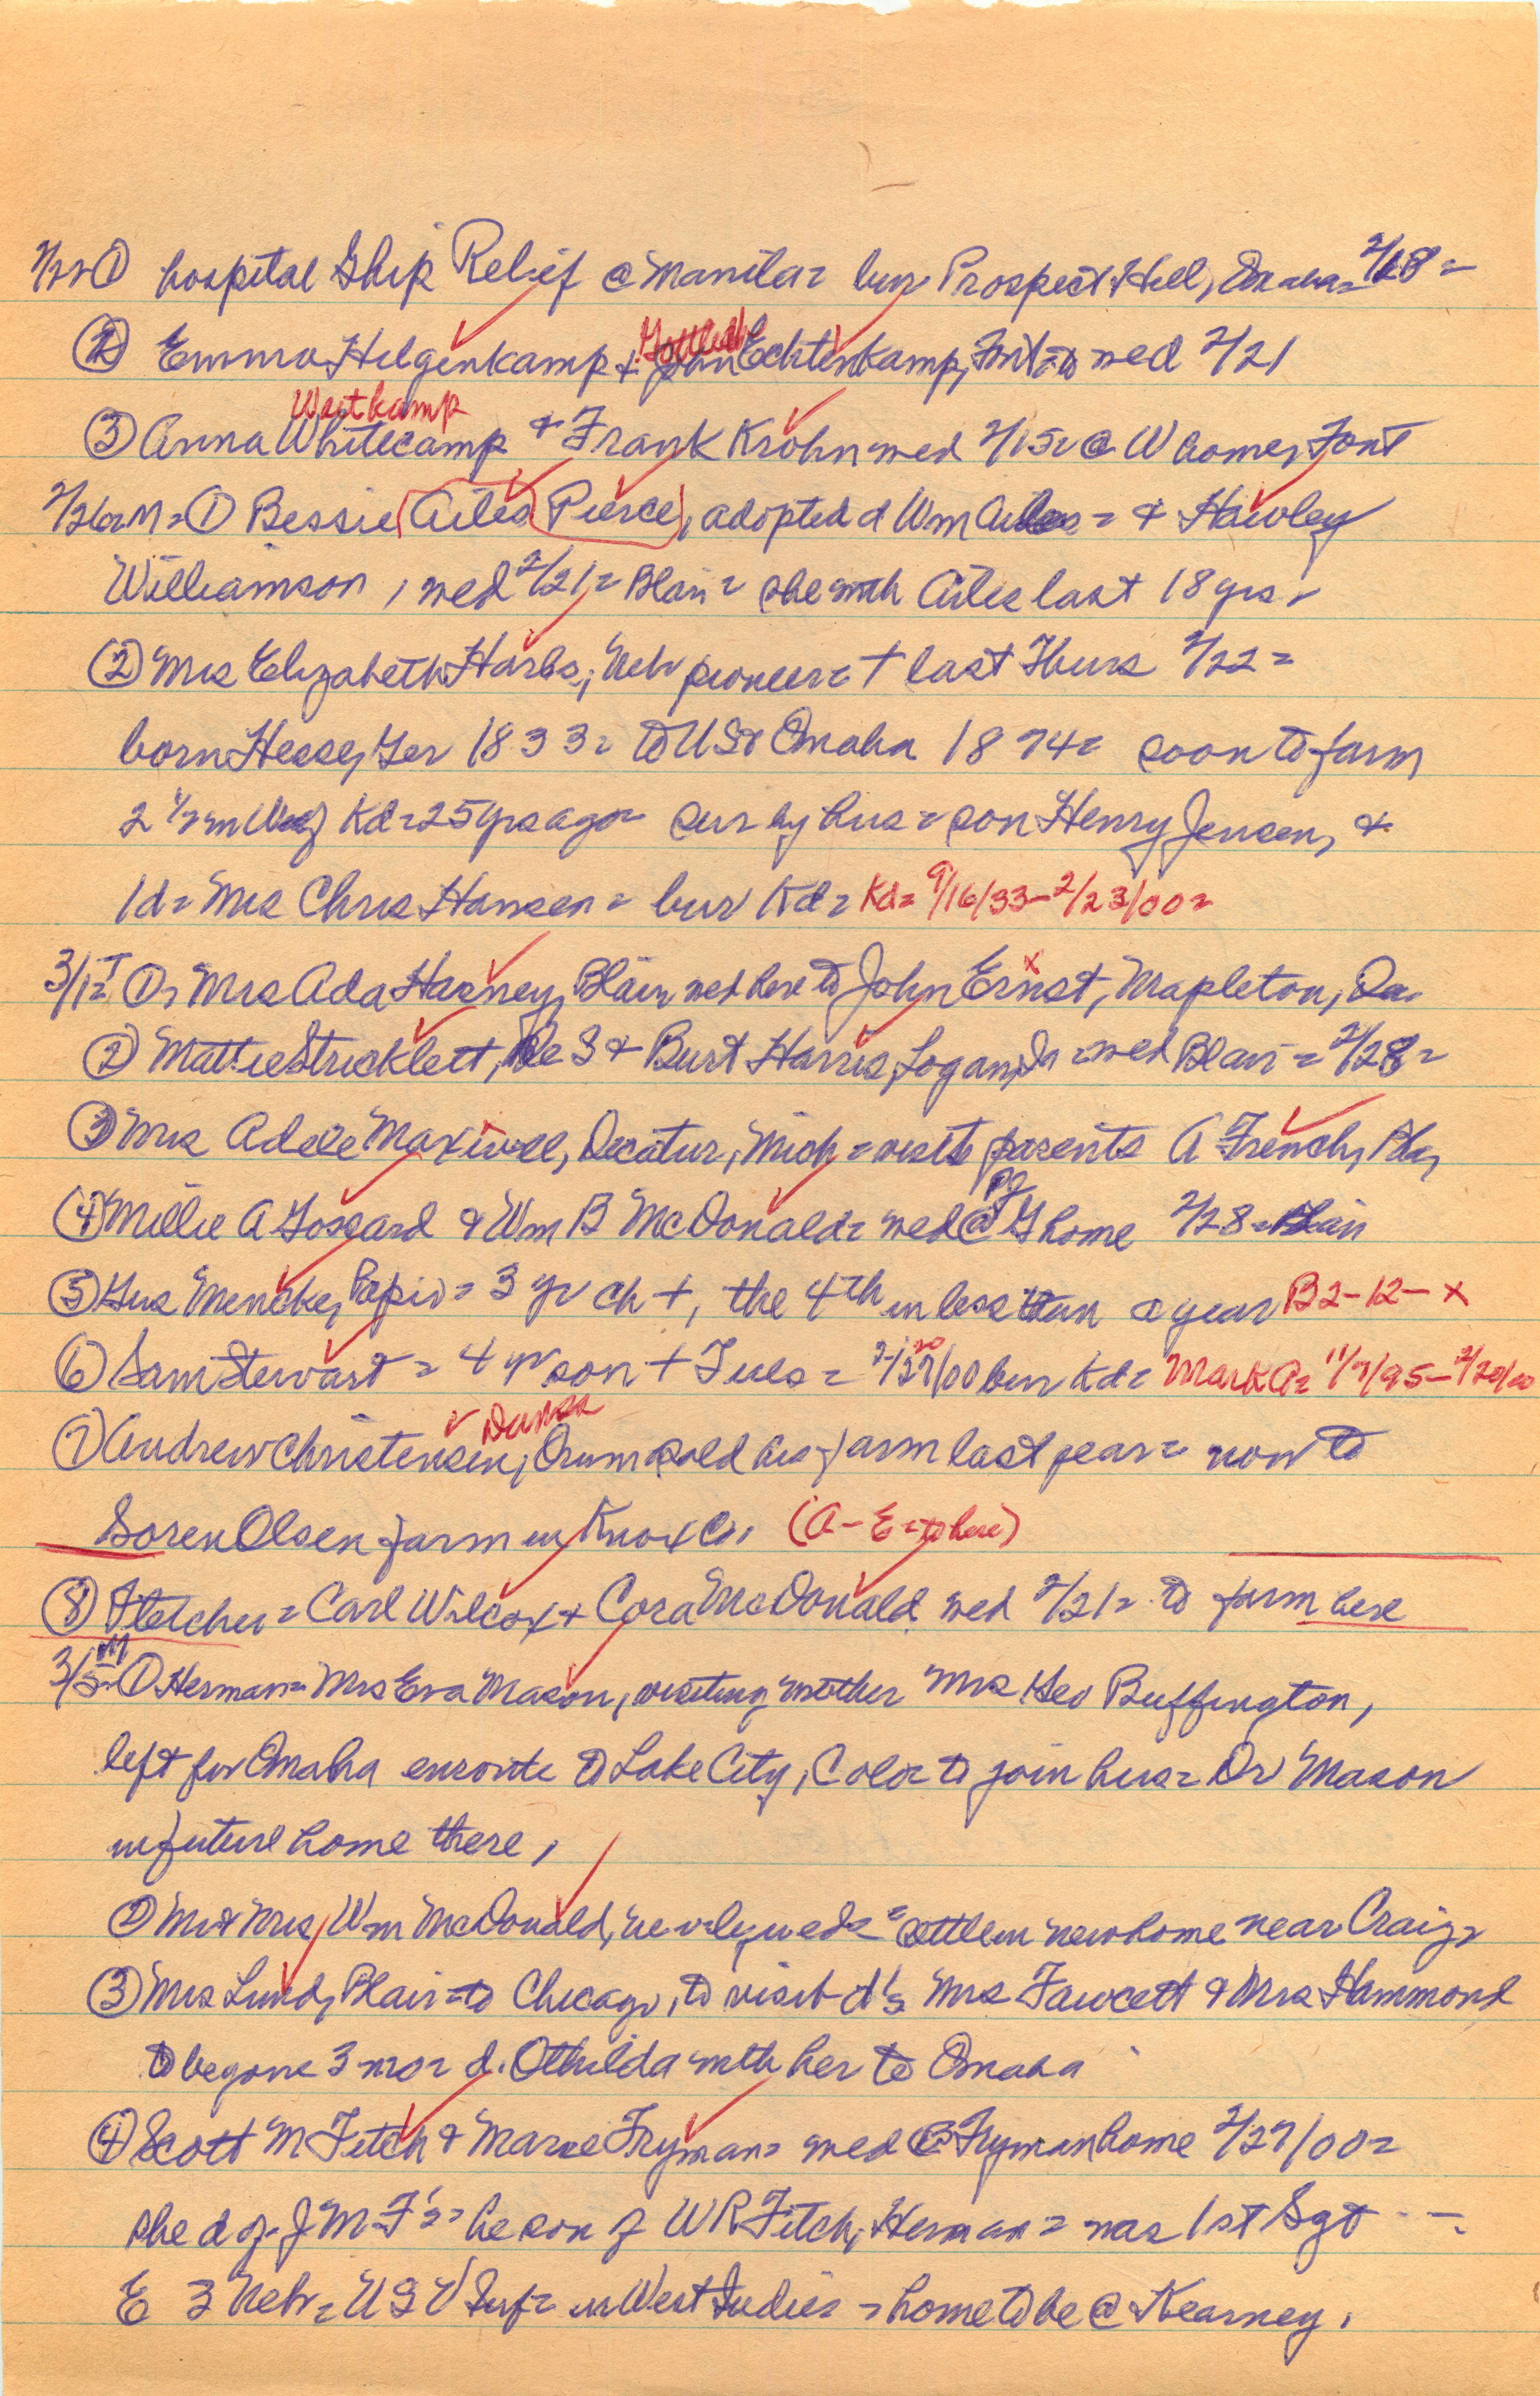 2/22 ① hospital Ship Relief @ Manila= bur Prospect Hill, Omaha= 2/18=
② Emma Hilgenkamp & Gottlieb Echtenkamp, wed 2/21
Wastkamp
③ Anna Whitecamp & Frank Krohn wed 2/15= @ W home, Font
2/26= M= ① Bessie (Ailes) (Pierce), adopted d Wm Ailes= & Hawley
Williamson, wed 2/21= Blair= she with Ailes last 18 yrs=
② Mrs Elizabeth Harbs, Neb pioneer= + last Thurs 2/22=
born Hesse, Ger 1833= to US & Omaha 1874= soon to farm
2 1/2 m W of Kd= 25 yrs ago= sur by hus= son Henry Jensen, &
1 d= Mrs Chris Hansen= bur Kd= Kd= 9/16/33-2/23/00=
3/1= T ①= Mrs Ada Harney, Blair, wed here to John Ernst, Mapleton, Ia.
② Mattie Stricklett, De S & Burt Harris, Logan, Ia= wed Blair= 2/28=
③ Mrs Adele Maxwell, Decatur, Mich= visits parents A French, Bla,
④ Millie A Gossard & Wm B McDonald= wed @ G home 2/28= Blair
⑤ Gus Mencke, Papio= 3 yr ch +, the 4th in less than a year B2-12-x
⑥ Sam Stewart= 4 yr son + Tues= 2/20/00 bur Kd= Mark A= 11/7/95-2/20/00
Dansk
⑦ Andrew Christensen, Orum sold his farm last year= now to
Soren Olsen farm in Knox Co, (A-E= to here)
⑧ Fletcher= Carl Wilcox & Cora McDonald wed 2/21= to farm here
3/5= M ① Herman= Mrs Eva Mason, visiting mother Mrs Geo Buffington,
left for Omaha enroute to Lake City, Colo= to join hus= Dr Mason
in future home there,
② Mr & Mrs Wm McDonald, newlyweds= settle in new home near Craig=
③ Mrs Lund, Blair= to Chicago, to visit d's Mrs Fawcett & Mrs Hammond
to be gone 3 mo= d. Othilda with her to Omaha
④ Scott M Fitch & Marie Fryman= wed @ Fryman home 2/27/00=
she d of J M F's= he son of W R Fitch, Herman= was 1st Sgt
E 3 Neb= USV Inf= in West Indies= home to be @ Kearney.